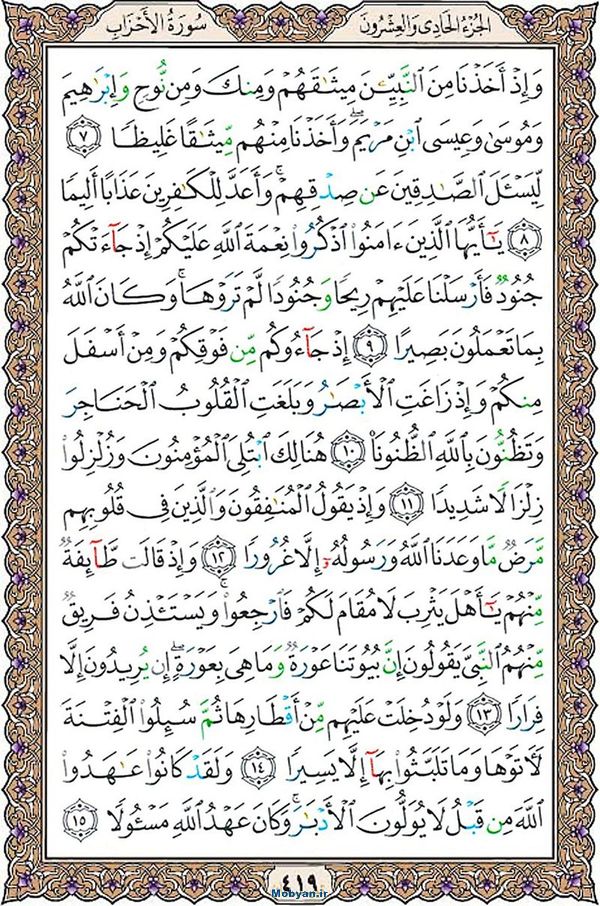 الجزء الحادی والعشرون
سورة الأحزاب
وَإِذْ أَخَذْنَا مِنَ ٱلنَّبِيِّـۧنَ مِيثَٰقَهُمْ وَمِنكَ وَمِن نُّوحٍ وَإِبْرَٰهِيمَ
وَمُوسَىٰ وَعِيسَى ٱبْنِ مَرْيَمَ ۖ وَأَخَذْنَا مِنْهُم مِّيثَٰقًا غَلِيظًا ٧
لِّيَسْـَٔلَ ٱلصَّٰدِقِينَ عَن صِدْقِهِمْ ۚ وَأَعَدَّ لِلْكَٰفِرِينَ عَذَابًا أَلِيمًا
٨ يَٰٓأَيُّهَا ٱلَّذِينَ ءَامَنُوا۟ ٱذْكُرُوا۟ نِعْمَةَ ٱللَّهِ عَلَيْكُمْ إِذْ جَآءَتْكُمْ
جُنُودٌ فَأَرْسَلْنَا عَلَيْهِمْ رِيحًا وَجُنُودًا لَّمْ تَرَوْهَا ۚ وَكَانَ ٱللَّهُ
بِمَا تَعْمَلُونَ بَصِيرًا ٩ إِذْ جَآءُوكُم مِّن فَوْقِكُمْ وَمِنْ أَسْفَلَ
مِنكُمْ وَإِذْ زَاغَتِ ٱلْأَبْصَٰرُ وَبَلَغَتِ ٱلْقُلُوبُ ٱلْحَنَاجِرَ
وَتَظُنُّونَ بِٱللَّهِ ٱلظُّنُونَا۠ ١٠ هُنَالِكَ ٱبْتُلِىَ ٱلْمُؤْمِنُونَ وَزُلْزِلُوا۟
زِلْزَالًا شَدِيدًا ١١ وَإِذْ يَقُولُ ٱلْمُنَٰفِقُونَ وَٱلَّذِينَ فِى قُلُوبِهِم
مَّرَضٌ مَّا وَعَدَنَا ٱللَّهُ وَرَسُولُهُۥٓ إِلَّا غُرُورًا ١٢ وَإِذْ قَالَت طَّآئِفَةٌ
مِّنْهُمْ يَٰٓأَهْلَ يَثْرِبَ لَا مُقَامَ لَكُمْ فَٱرْجِعُوا۟ ۚ وَيَسْتَـْٔذِنُ فَرِيقٌ
مِّنْهُمُ ٱلنَّبِىَّ يَقُولُونَ إِنَّ بُيُوتَنَا عَوْرَةٌ وَمَا هِىَ بِعَوْرَةٍ ۖ إِن يُرِيدُونَ إِلَّا
فِرَارًا ١٣ وَلَوْ دُخِلَتْ عَلَيْهِم مِّنْ أَقْطَارِهَا ثُمَّ سُئِلُوا۟ ٱلْفِتْنَةَ
لَـَٔاتَوْهَا وَمَا تَلَبَّثُوا۟ بِهَآ إِلَّا يَسِيرًا ١٤ وَلَقَدْ كَانُوا۟ عَٰهَدُوا۟
ٱللَّهَ مِن قَبْلُ لَا يُوَلُّونَ ٱلْأَدْبَٰرَ ۚ وَكَانَ عَهْدُ ٱللَّهِ مَسْـُٔولًا ١٥
٤١٩
Mobyan.ir